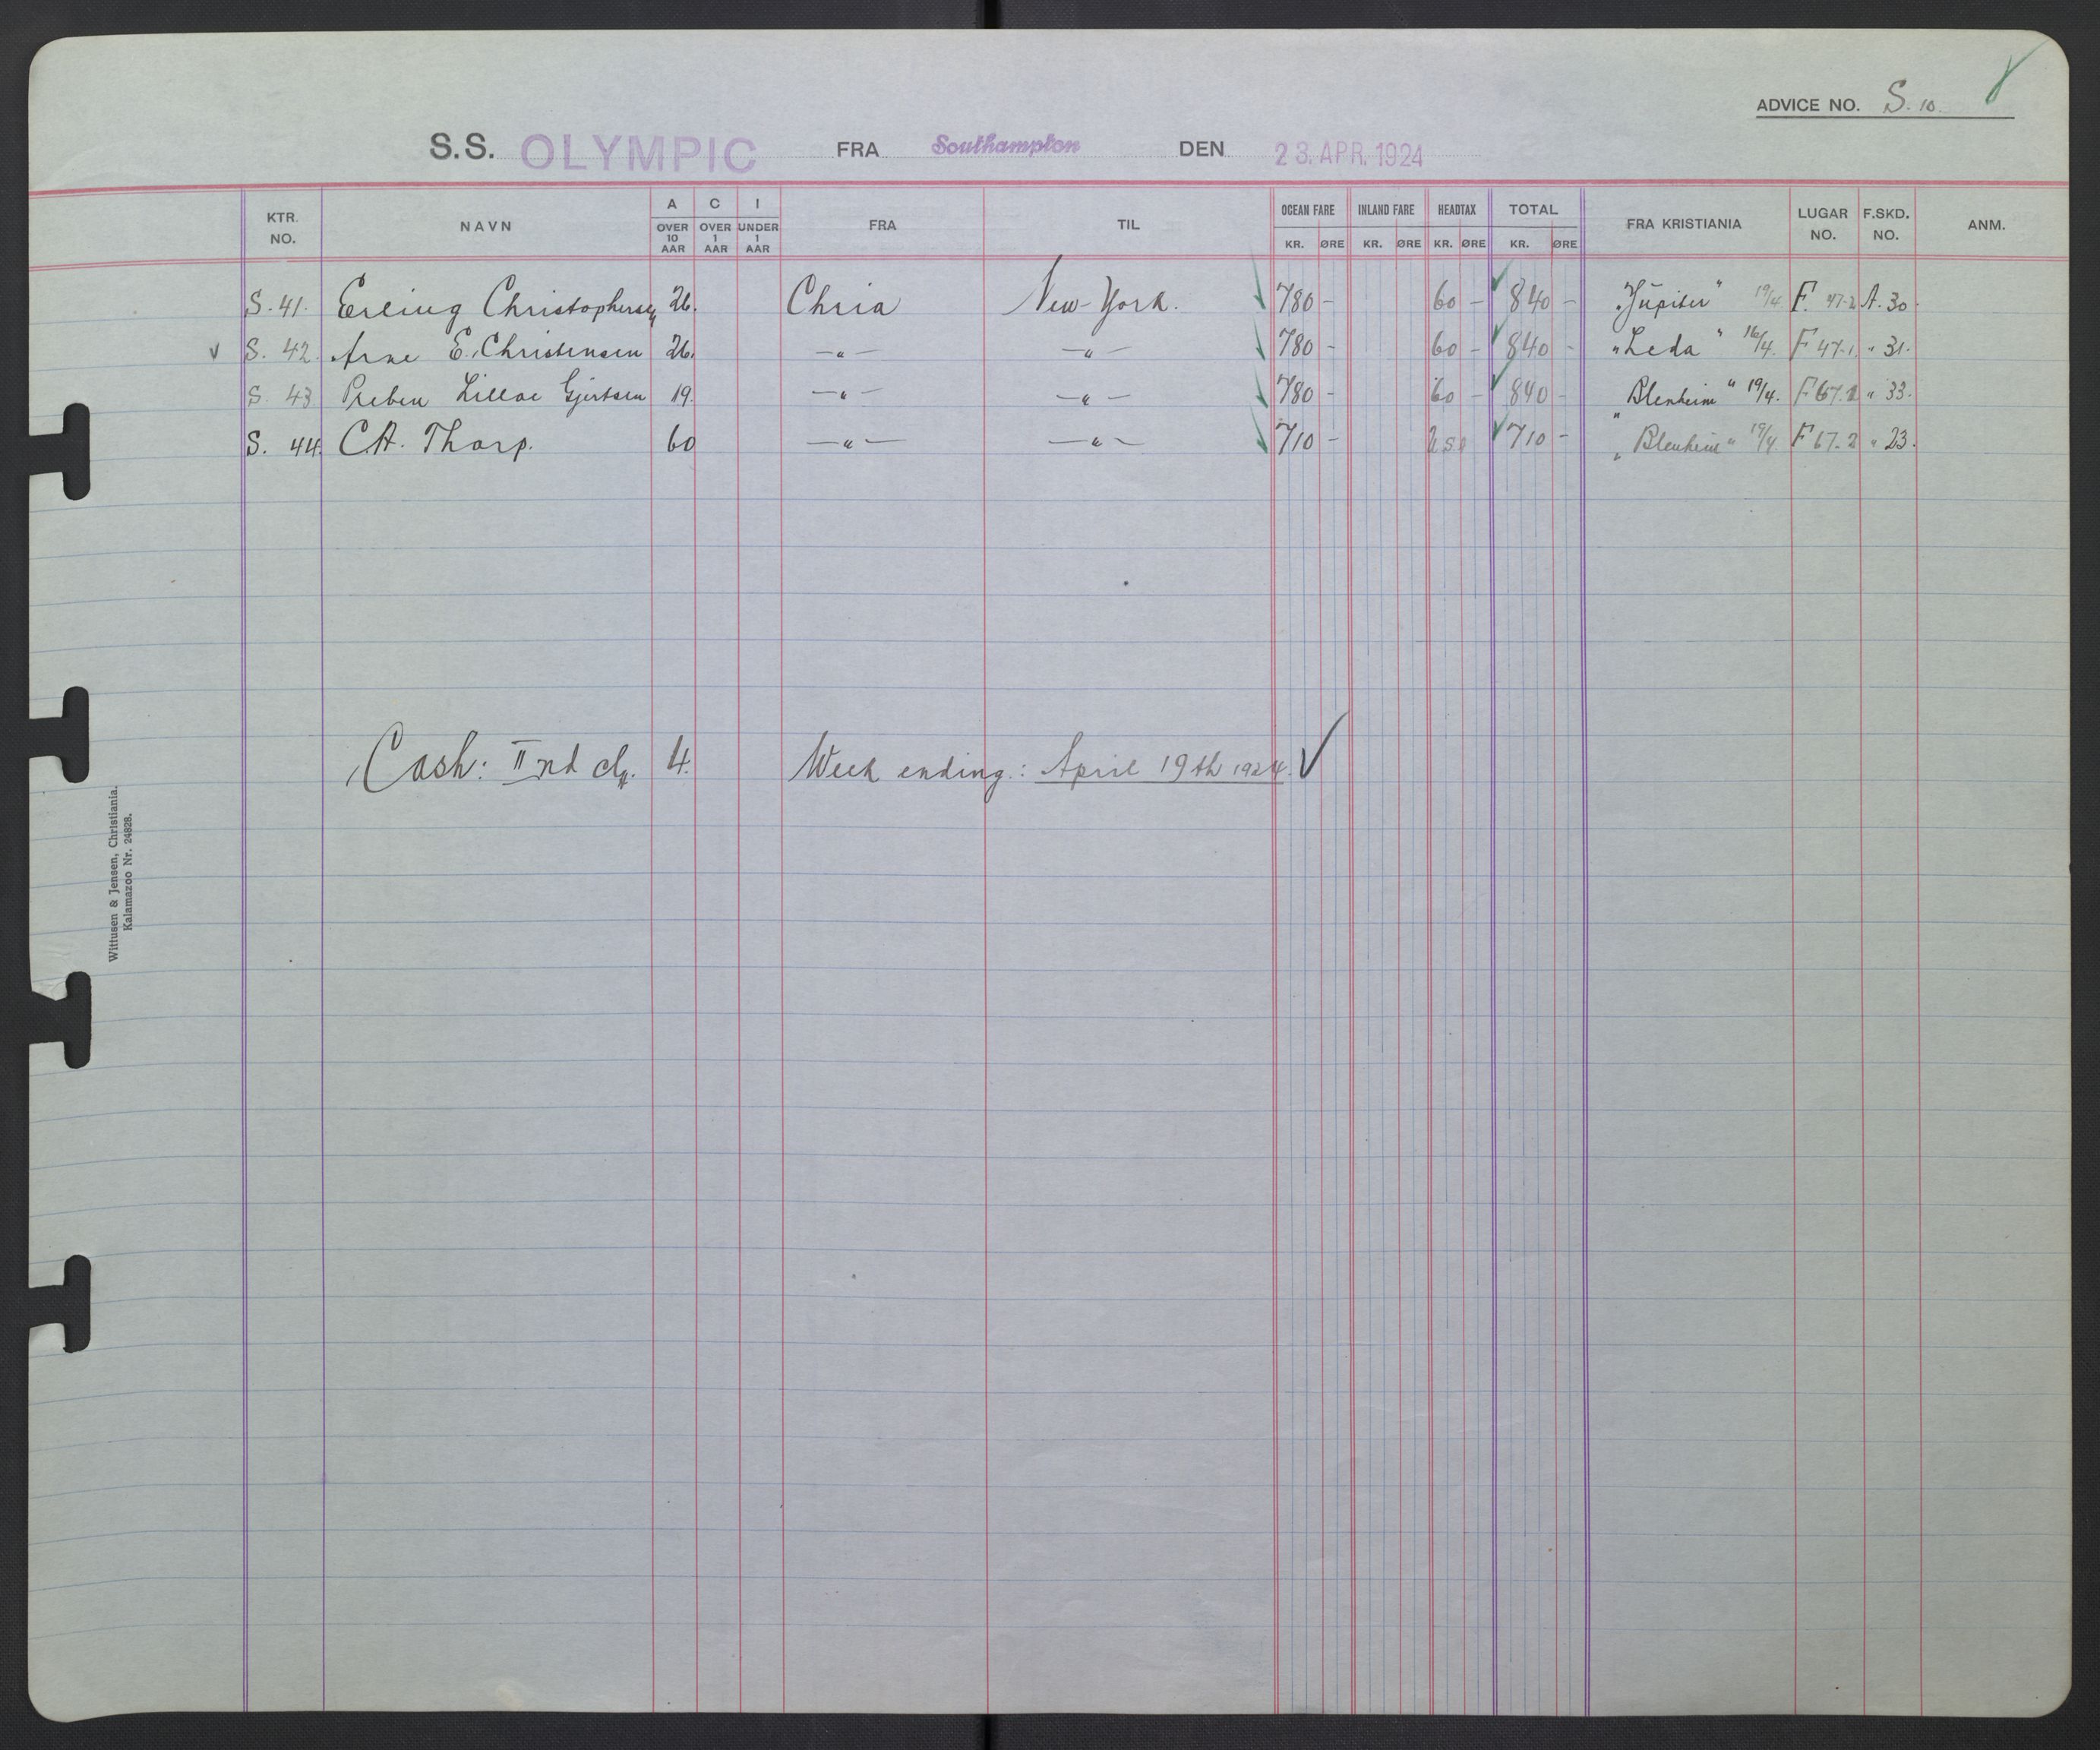 ADVICE NO. S. 10.
S.S. OLYMPIC FRA Southampton DEN 23. APR. 1924
KTR. NO. NAVN A OVER 10 AAR C OVER 1 AAR I UNDER 1 AAR FRA TIL OCEAN FARE KR. ØRE INLAND FARE KR. ØRE HEADTAX KR. ØRE TOTAL KR. ØRE FRA KRISTIANIA LUGAR NO. F.SKD. NO. ANM.
S. 41. Erling Christophersen 26. Chria New-York. 780 - 60 - 840 - "Jupiter" 19/4 F. 47-2 A. 30
S. 42. Arne E. Christensen 26. —"— —"— 780 - 60 - 840 - "Leda" 16/4. F 47-1. " 31.
S. 43 Preben Lilloe Gjertsen 19. —"— —"— 780 - 60 - 840 - "Blenheim" 19/4. F 67.1 " 33.
S. 44. C.A. Thorp. 60 —"— —"— 710 - 710 - "Blenheim" 19/4 F 67-2 " 23.
Cash: IInd cl. 4. Week ending.: April 19th 1924.
Wittusen & Jensen, Christiania.
Kalamazoo Nr. 24828.